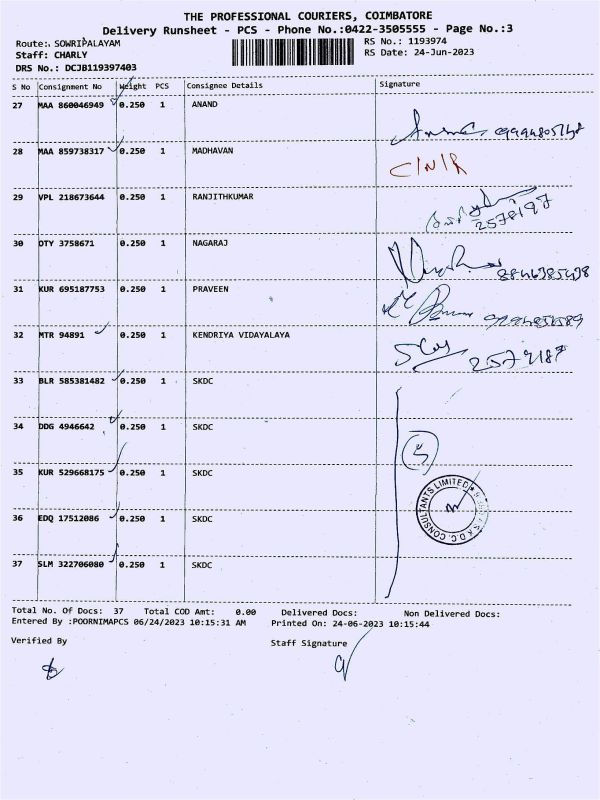 THE PROFESSIONAL COURIERS, COIMBATORE
Delivery Runsheet - PCS - Phone No.:0422-3505555 - Page No.:3
Route: SOWRIPALAYAM RS No.: 1193974
Staff: CHARLY RS Date: 24-Jun-2023
DRS No.: DCJB119397403
S No Consignment No Weight PCS Consignee Details Signature
27 MAA 860046949 0.250 1 ANAND
28 MAA 859738317 0.250 1 MADHAVAN C/N/R
29 VPL 218673644 0.250 1 RANJITHKUMAR 2578197
30 OTY 3758671 0.250 1 NAGARAJ
31 KUR 695187753 0.250 1 PRAVEEN
32 MTR 94891 0.250 1 KENDRIYA VIDAYALAYA
33 BLR 585381482 0.250 1 SKDC
34 DDG 4946642 0.250 1 SKDC
35 KUR 529668175 0.250 1 SKDC 5
36 EDQ 17512086 0.250 1 SKDC CONSULTANTS LIMITED
37 SLM 322706080 0.250 1 SKDC
Total No. Of Docs: 37 Total COD Amt: 0.00 Delivered Docs: Non Delivered Docs:
Entered By :POORNIMAPCS 06/24/2023 10:15:31 AM Printed On: 24-06-2023 10:15:44
Verified By Staff Signature